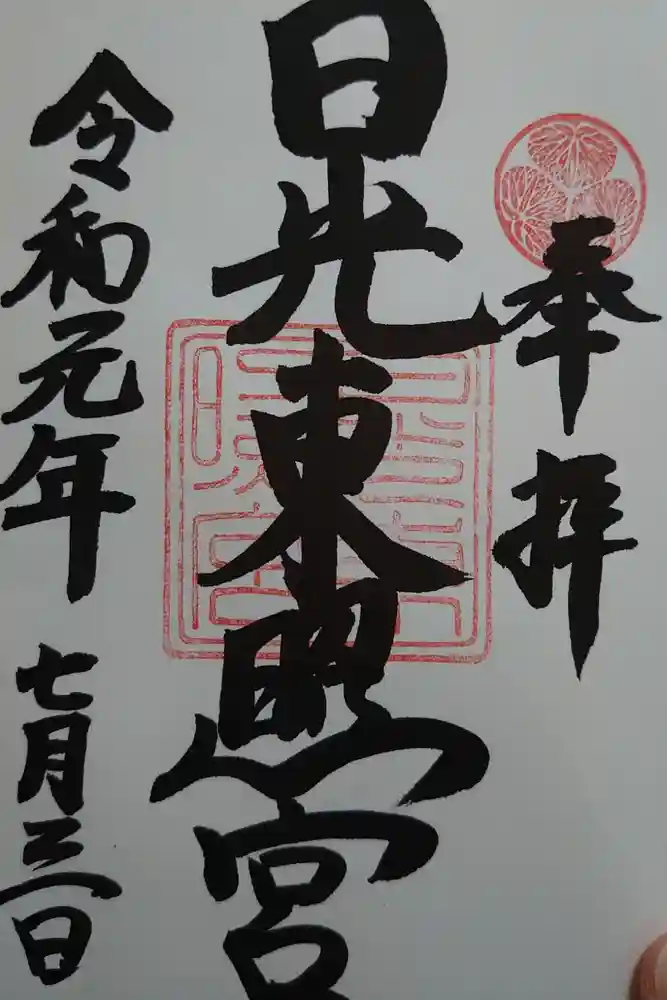 奉拝
日光東照宮
令和元年七月三日